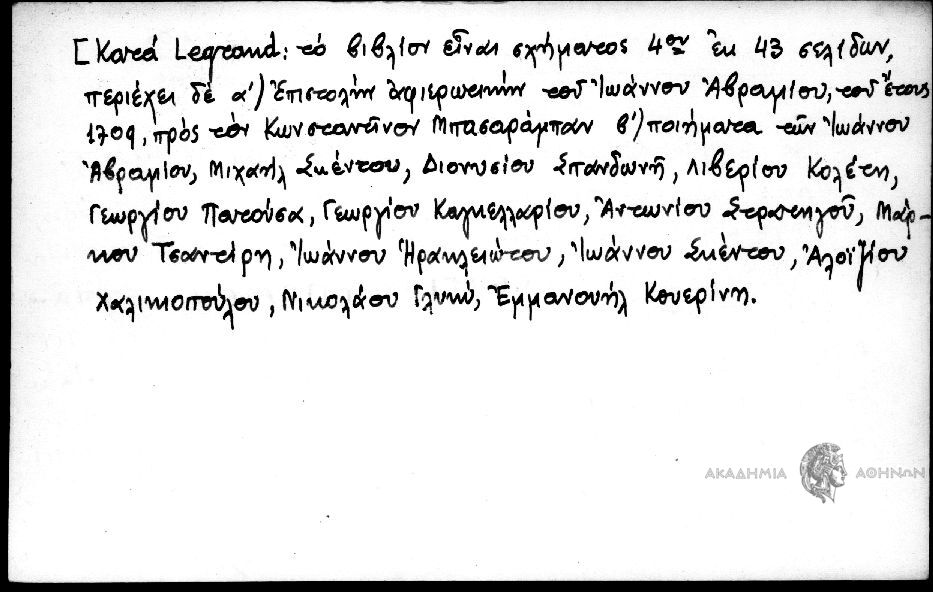 [Κατά Legrand: τό βιβλίον εἶναι σχήματος 4ον ἐκ 43 σελίδων,
περιέχει δέ α') Ἐπιστολήν ἀφιερωτικήν τοῦ Ἰωάννου Ἀβραμίου, τοῦ ἔτους
1709, πρός τόν Κωνσταντῖνον Μπασαράμπαν β') ποιήματα τῶν Ἰωάννου
Ἀβραμίου, Μιχαήλ Σκέντου, Διονυσίου Σπανδωνῆ, Λιβερίου Κολέτη,
Γεωργίου Πατούσα, Γεωργίου Καγκελλαρίου, Ἀντωνίου Στρατηγοῦ, Μάρ-
κου Τσαντίρη, Ἰωάννου Ἡρακλειώτου, Ἰωάννου Σκέντου, Ἀλοϊζίου
Χαλικιοπούλου, Νικολάου Γλυκύ, Ἐμμανουήλ Κουερίνη.
ΑΚΑΔΗΜΙΑ ΑΘΗΝΩΝ